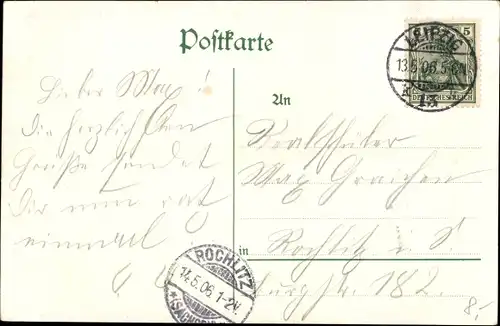 Postkarte
LEIPZIG
13.5.06.5-6N
5
DEUTSCHES REICH
Lieber Max!
Die herzlichsten
Grüße sendet
Dir nun
einmal
An
Realschüler
Max Graichen
in Rochlitz i. S.
182.
ROCHLITZ
14.5.06.1-2V.
*(SACHSEN)
8.-